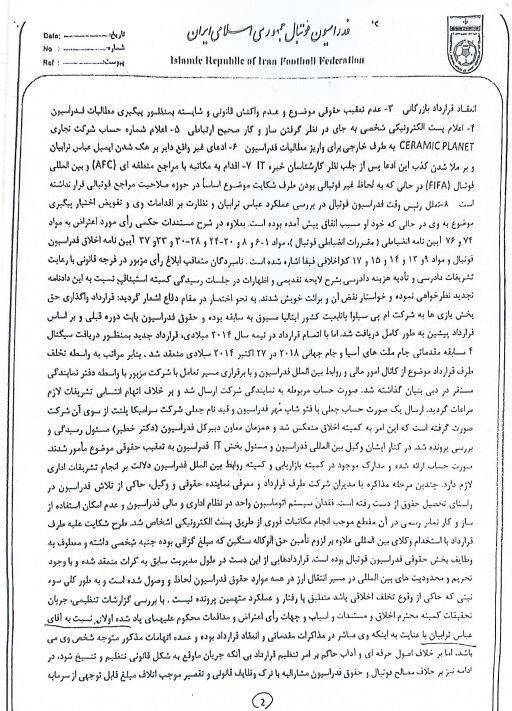 فدراسیون فوتبال جمهوری اسلامی ایران
Islamic Republic of Iran Football Federation
Date: تاریخ:
No : شماره:
Ref : پیوست:
انعقاد قرارداد بازرگانی ۳- عدم تعقیب حقوقی موضوع و عدم واکنش قانونی و شایسته بمنظور پیگیری مطالبات فدراسیون
۴- اعلام پست الکترونیکی شخصی به جای در نظر گرفتن ساز و کار صحیح ارتباطی ۵- اعلام شماره حساب شرکت تجاری
CERAMIC PLANET به طرف خارجی برای واریز مطالبات فدراسیون ۶- ادعای غیر واقع دایر بر هک شدن ایمیل عباس ترابیان
و بر ملا شدن کذب این ادعا پس از جلب نظر کارشناسان خبره IT ۷- اقدام به مکاتبه با مراجع منطقه ای (AFC) و بین المللی
فوتبال (FIFA) در حالی که به لحاظ غیر فوتبالی بودن طرف شکایت موضوع اساساً در حوزه صلاحیت مراجع فوتبالی قرار نداشته
است ۸- رئیس وقت فدراسیون فوتبال در بررسی عملکرد عباس ترابیان و نظارت بر اقدامات وی و تفویض اختیار پیگیری
موضوع به وی در حالی که خود او مسبب اتفاق پیش آمده بوده است. بعلاوه در شرح مستندات حکمی رأی مورد اعتراض به مواد
۷۴ و ۷۶ آیین نامه انضباطی (مقررات انضباطی فوتبال)، مواد ۱-۶ و ۸ و ۲۰-۲۴ و ۲۸-۳۰ و ۲۳ و ۳۷ آیین نامه اخلاق فدراسیون
فوتبال و مواد ۹ و ۱۳ و ۱۴ و ۱۵ و ۱۷ کد اخلاقی فیفا اشاره شده است. نامبردگان متعاقب ابلاغ رأی مزبور در فرجه قانونی با رعایت
تشریفات دادرسی و تأدیه هزینه دادرسی بشرح لایحه تقدیمی و اظهارات در جلسات رسیدگی کمیته استیناف نسبت به این دادنامه
تجدید نظرخواهی نموده و خواستار نقض آن و برائت خویش شدند. به نحو اختصار در مقام دفاع اشعار گردید: قرارداد واگذاری حق
پخش بازی ها به شرکت ام پی سیلوا باتابعیت کشور ایتالیا مسبوق به سابقه بوده و حقوق فدراسیون بابت دوره قبلی و بر اساس
قرارداد پیشین به طور کامل دریافت شد. اما با اتمام قرارداد در نیمه سال ۲۰۱۴ میلادی، قرارداد جدید بمنظور دریافت سیگنال
۴ مسابقه مقدماتی جام ملت های آسیا و جام جهانی ۲۰۱۸ در ۲۷ اکتبر ۲۰۱۴ میلادی منعقد شد. بنابر مراتب به واسطه تخلف
طرف قرارداد موضوع از کانال امور مالی و روابط بین الملل فدراسیون و با برقراری مسیر تعامل با شرکت مزبور با واسطه دفتر نمایندگی
مستقر در دبی بنیان گذاشته شد. صورت حساب مربوطه به نمایندگی شرکت ارسال شد و بر خلاف اتهام انتسابی تشریفات لازم
مراعات گردید. ارسال یک صورت حساب جعلی با فتو شاپ مهر فدراسیون و قید نام جعلی شرکت سرامیک پلنت از سوی آن شرکت
صورت گرفته است که این امر به کمیته اخلاق منعکس شد و همزمان معاون دبیرکل فدراسیون (دکتر خطیر) مسئول رسیدگی و
بررسی پرونده شد. در کنار ایشان وکیل بین المللی فدراسیون و مسئول بخش IT فدراسیون به تعقیب حقوقی موضوع مأمور شدند.
صورت حساب ارائه شده و مدارک موجود در کمیته بازاریابی و کمیته روابط بین الملل فدراسیون دلالت بر انجام تشریفات اداری
لازم دارد. چندین مرحله مذاکره با مدیران شرکت طرف قرارداد و معرفی نماینده حقوقی و وکیل، حاکی از تلاش فدراسیون در
راستای تحصیل حقوق از دست رفته است. فقدان سیستم اتوماسیون واحد در نظام اداری و مالی فدراسیون و عدم امکان استفاده از
ساز و کار نمابر رسمی در آن مقطع موجب انجام مکاتبات فوری از طریق پست الکترونیکی اشخاص شد. طرح شکایت علیه طرف
قرارداد با استخدام وکلای بین المللی علاوه بر لزوم تأمین حق الوکاله سنگین که مبلغ گزافی بوده جنبه شخصی داشته و معطوف به
وظایف بخش حقوقی فدراسیون فوتبال بوده است. قراردادهایی از این دست در طول مدیریت سابق به کرات منعقد شده و با وجود
تحریم و محدودیت های بین المللی در مسیر انتقال ارز در همه موارد حقوق فدراسیون لحاظ و وصول شده است و به طور کلی سوء
نیتی که حاکی از وقوع تخلف اخلاقی باشد منطبق با رفتار و عملکرد متهمین پرونده نیست. با بررسی گزارشات تنظیمی، جریان
تحقیقات کمیته محترم اخلاق و مستندات و اسباب و جهات رأی اعتراض و مدافعات محکوم علیهمای یاد شده اولاً، نسبت به آقای
عباس ترابیان با عنایت به اینکه وی مباشر در مذاکرات مقدماتی و انعقاد قرارداد بوده و عمده اتهامات مذکور متوجه شخص وی می
باشد، اما بر خلاف اصول حرفه ای و آداب حاکم بر امر تنظیم قرارداد بی آنکه جریان ماوقع به شکل قانونی تنظیم و تنسیخ شود، در
ادامه نیز بر خلاف مصالح فوتبال و حقوق فدراسیون مشارالیه با ترک وظایف قانونی و تقصیر موجب اتلاف مبلغ قابل توجهی از سرمایه
2